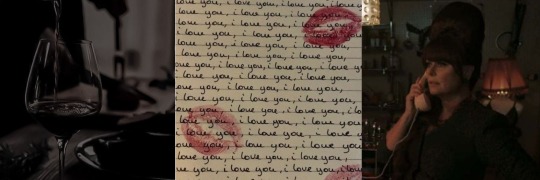 i love you, i love you, i love you, i love
i love you, i love you, i love you,
i love you, i love you, i love you
i love you, i love you, i love you,
love you, i love you, i love you,
i love you, i love you, i love you,
love you, i love you, i love you, i love
i love you, i love you, i love you,
love you, i love you, i love you,
love you, i love you, i love you,
i love you, i love you, i love you,
love you, i love you, i love you,
i love you, i love you, i love you,
love you, i love you, i love you,